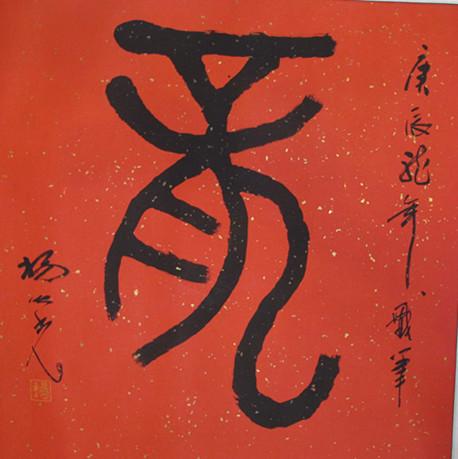 龍
庚辰龍年戲筆